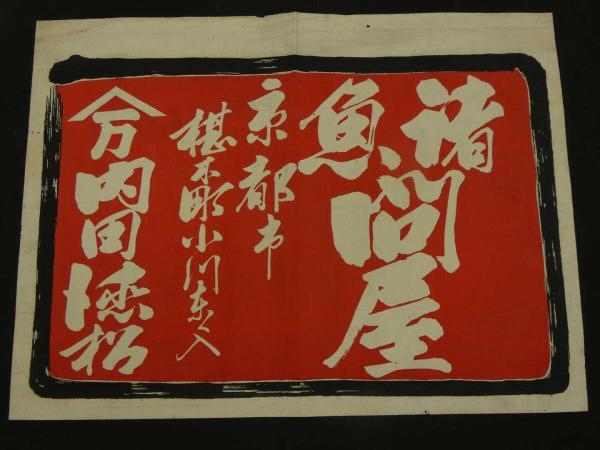 諸
魚問屋
京都市
椹木町小川東へ入
万
内田徳松